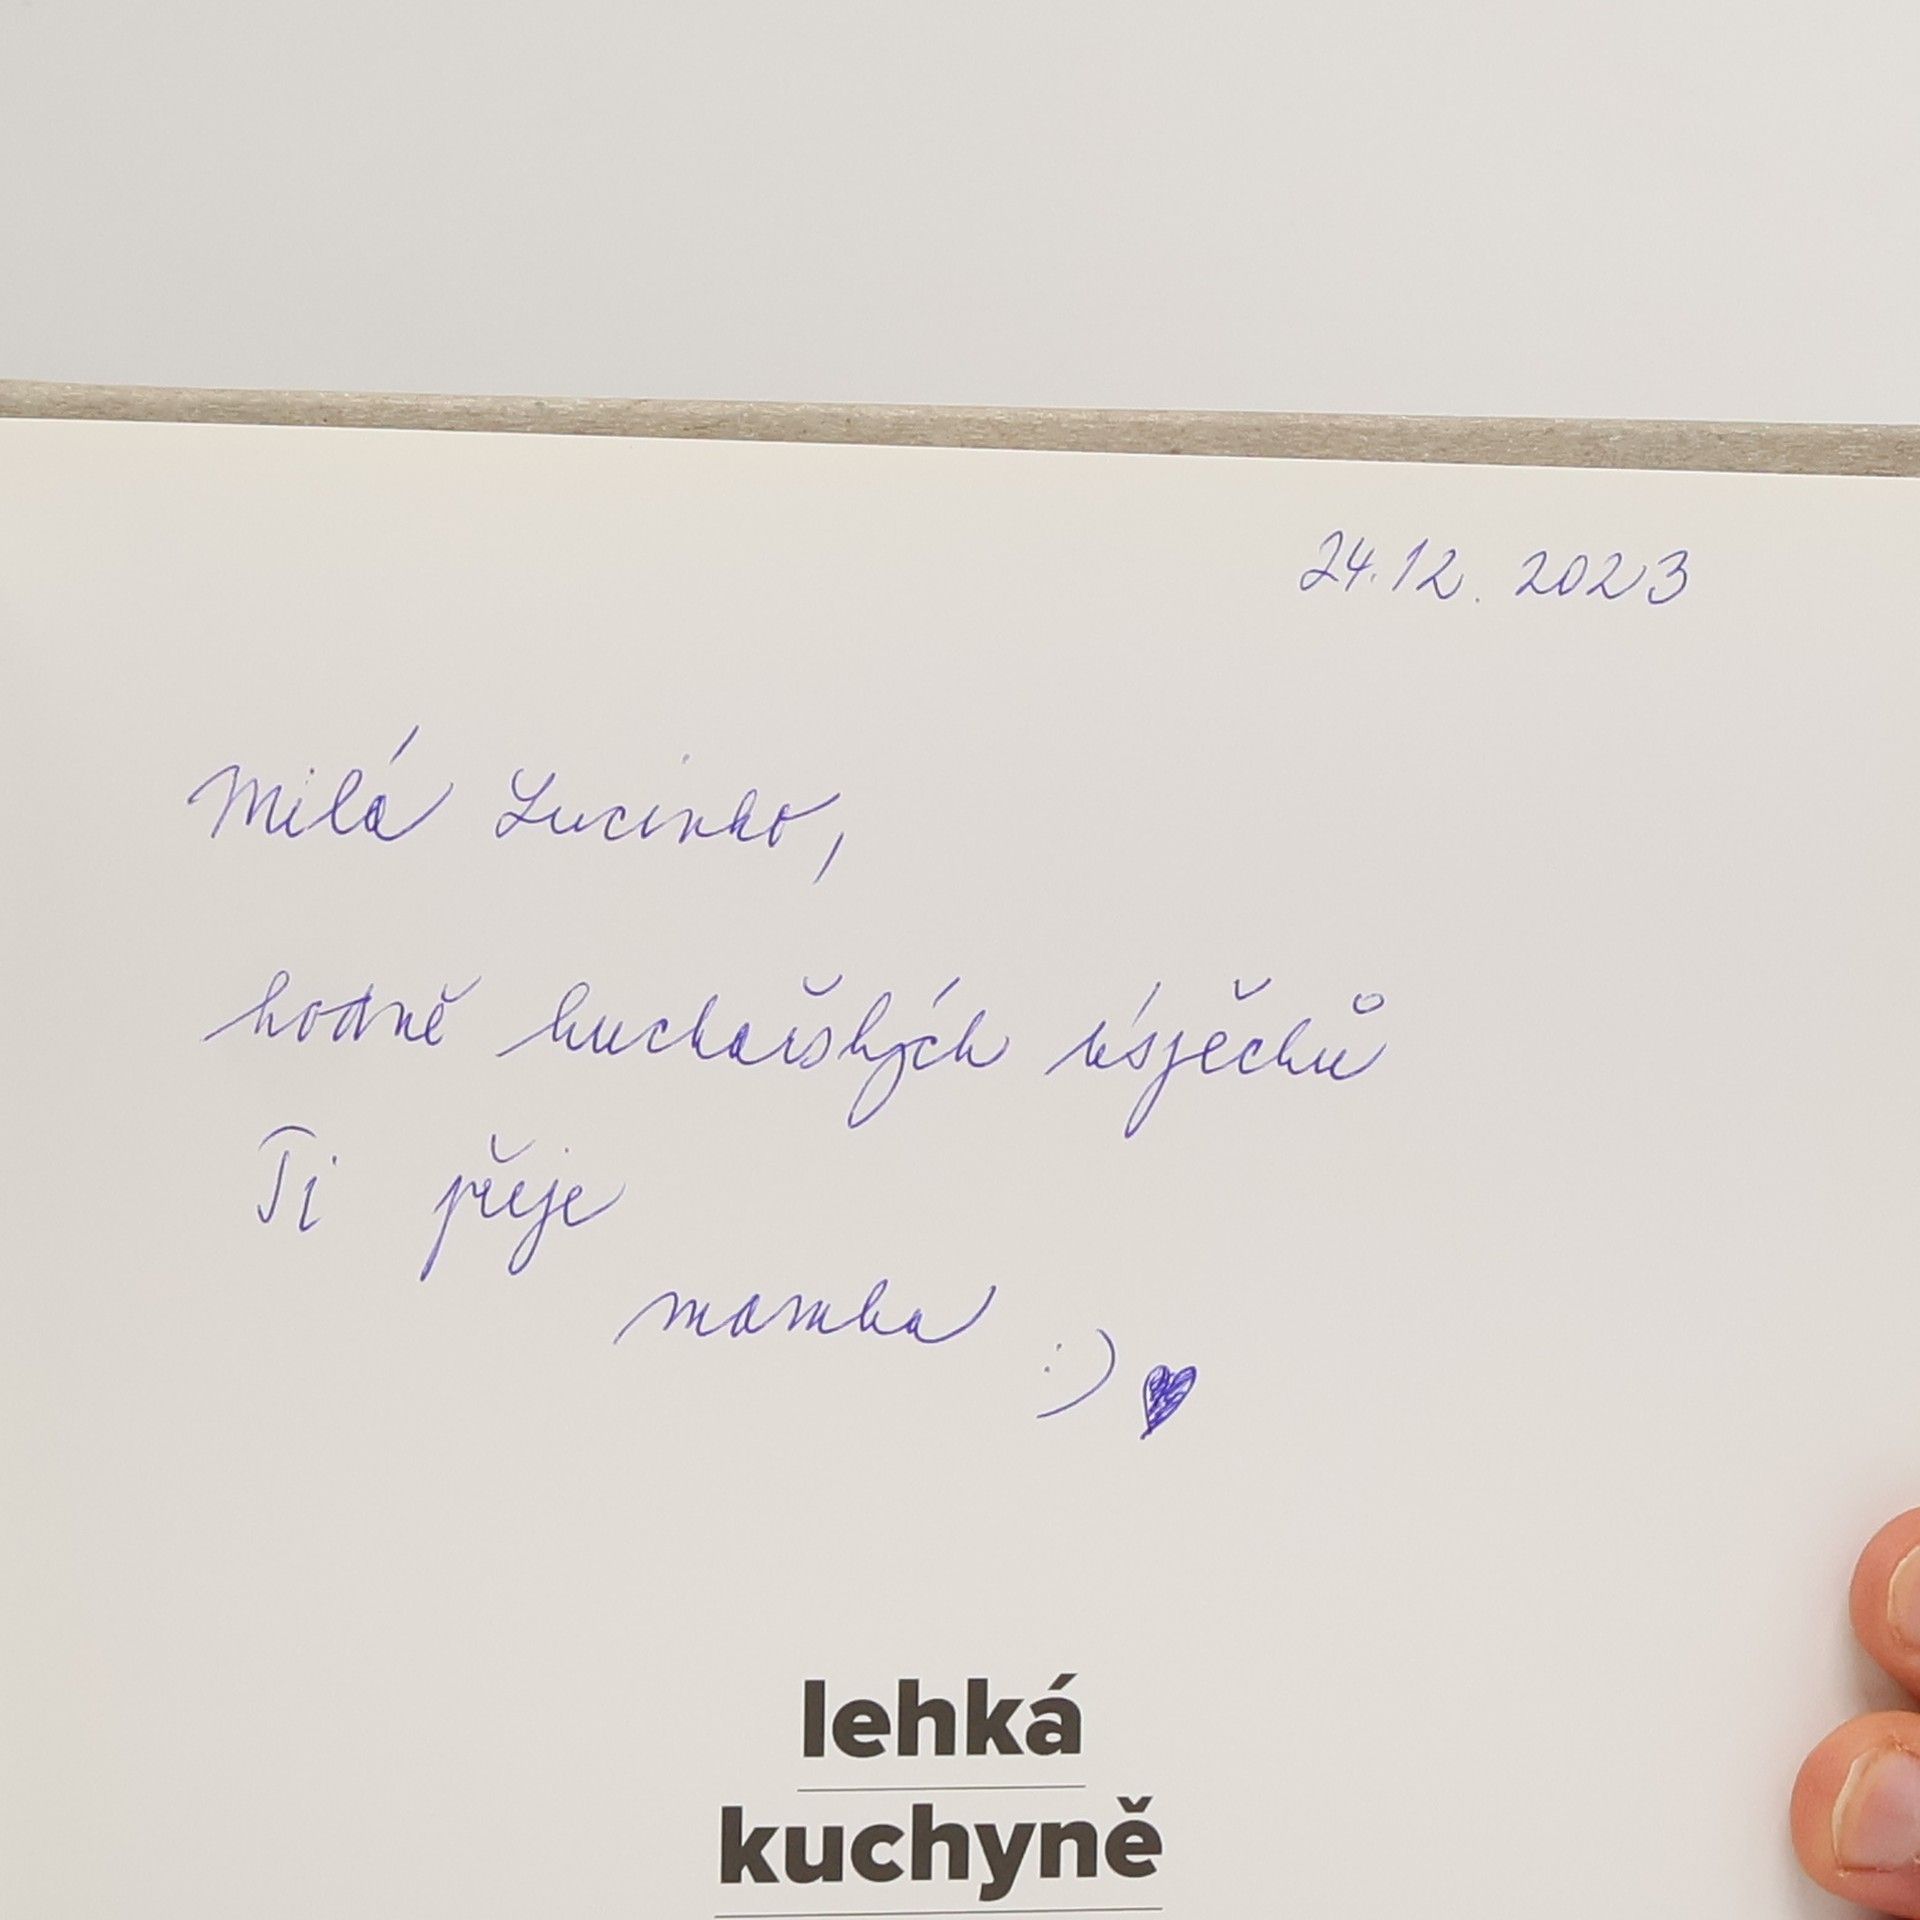 24.12. 2023
Milá Lucinko,
hodně kuchařských úspěchů
Ti přeje
mamka :) ♥
lehká
kuchyně